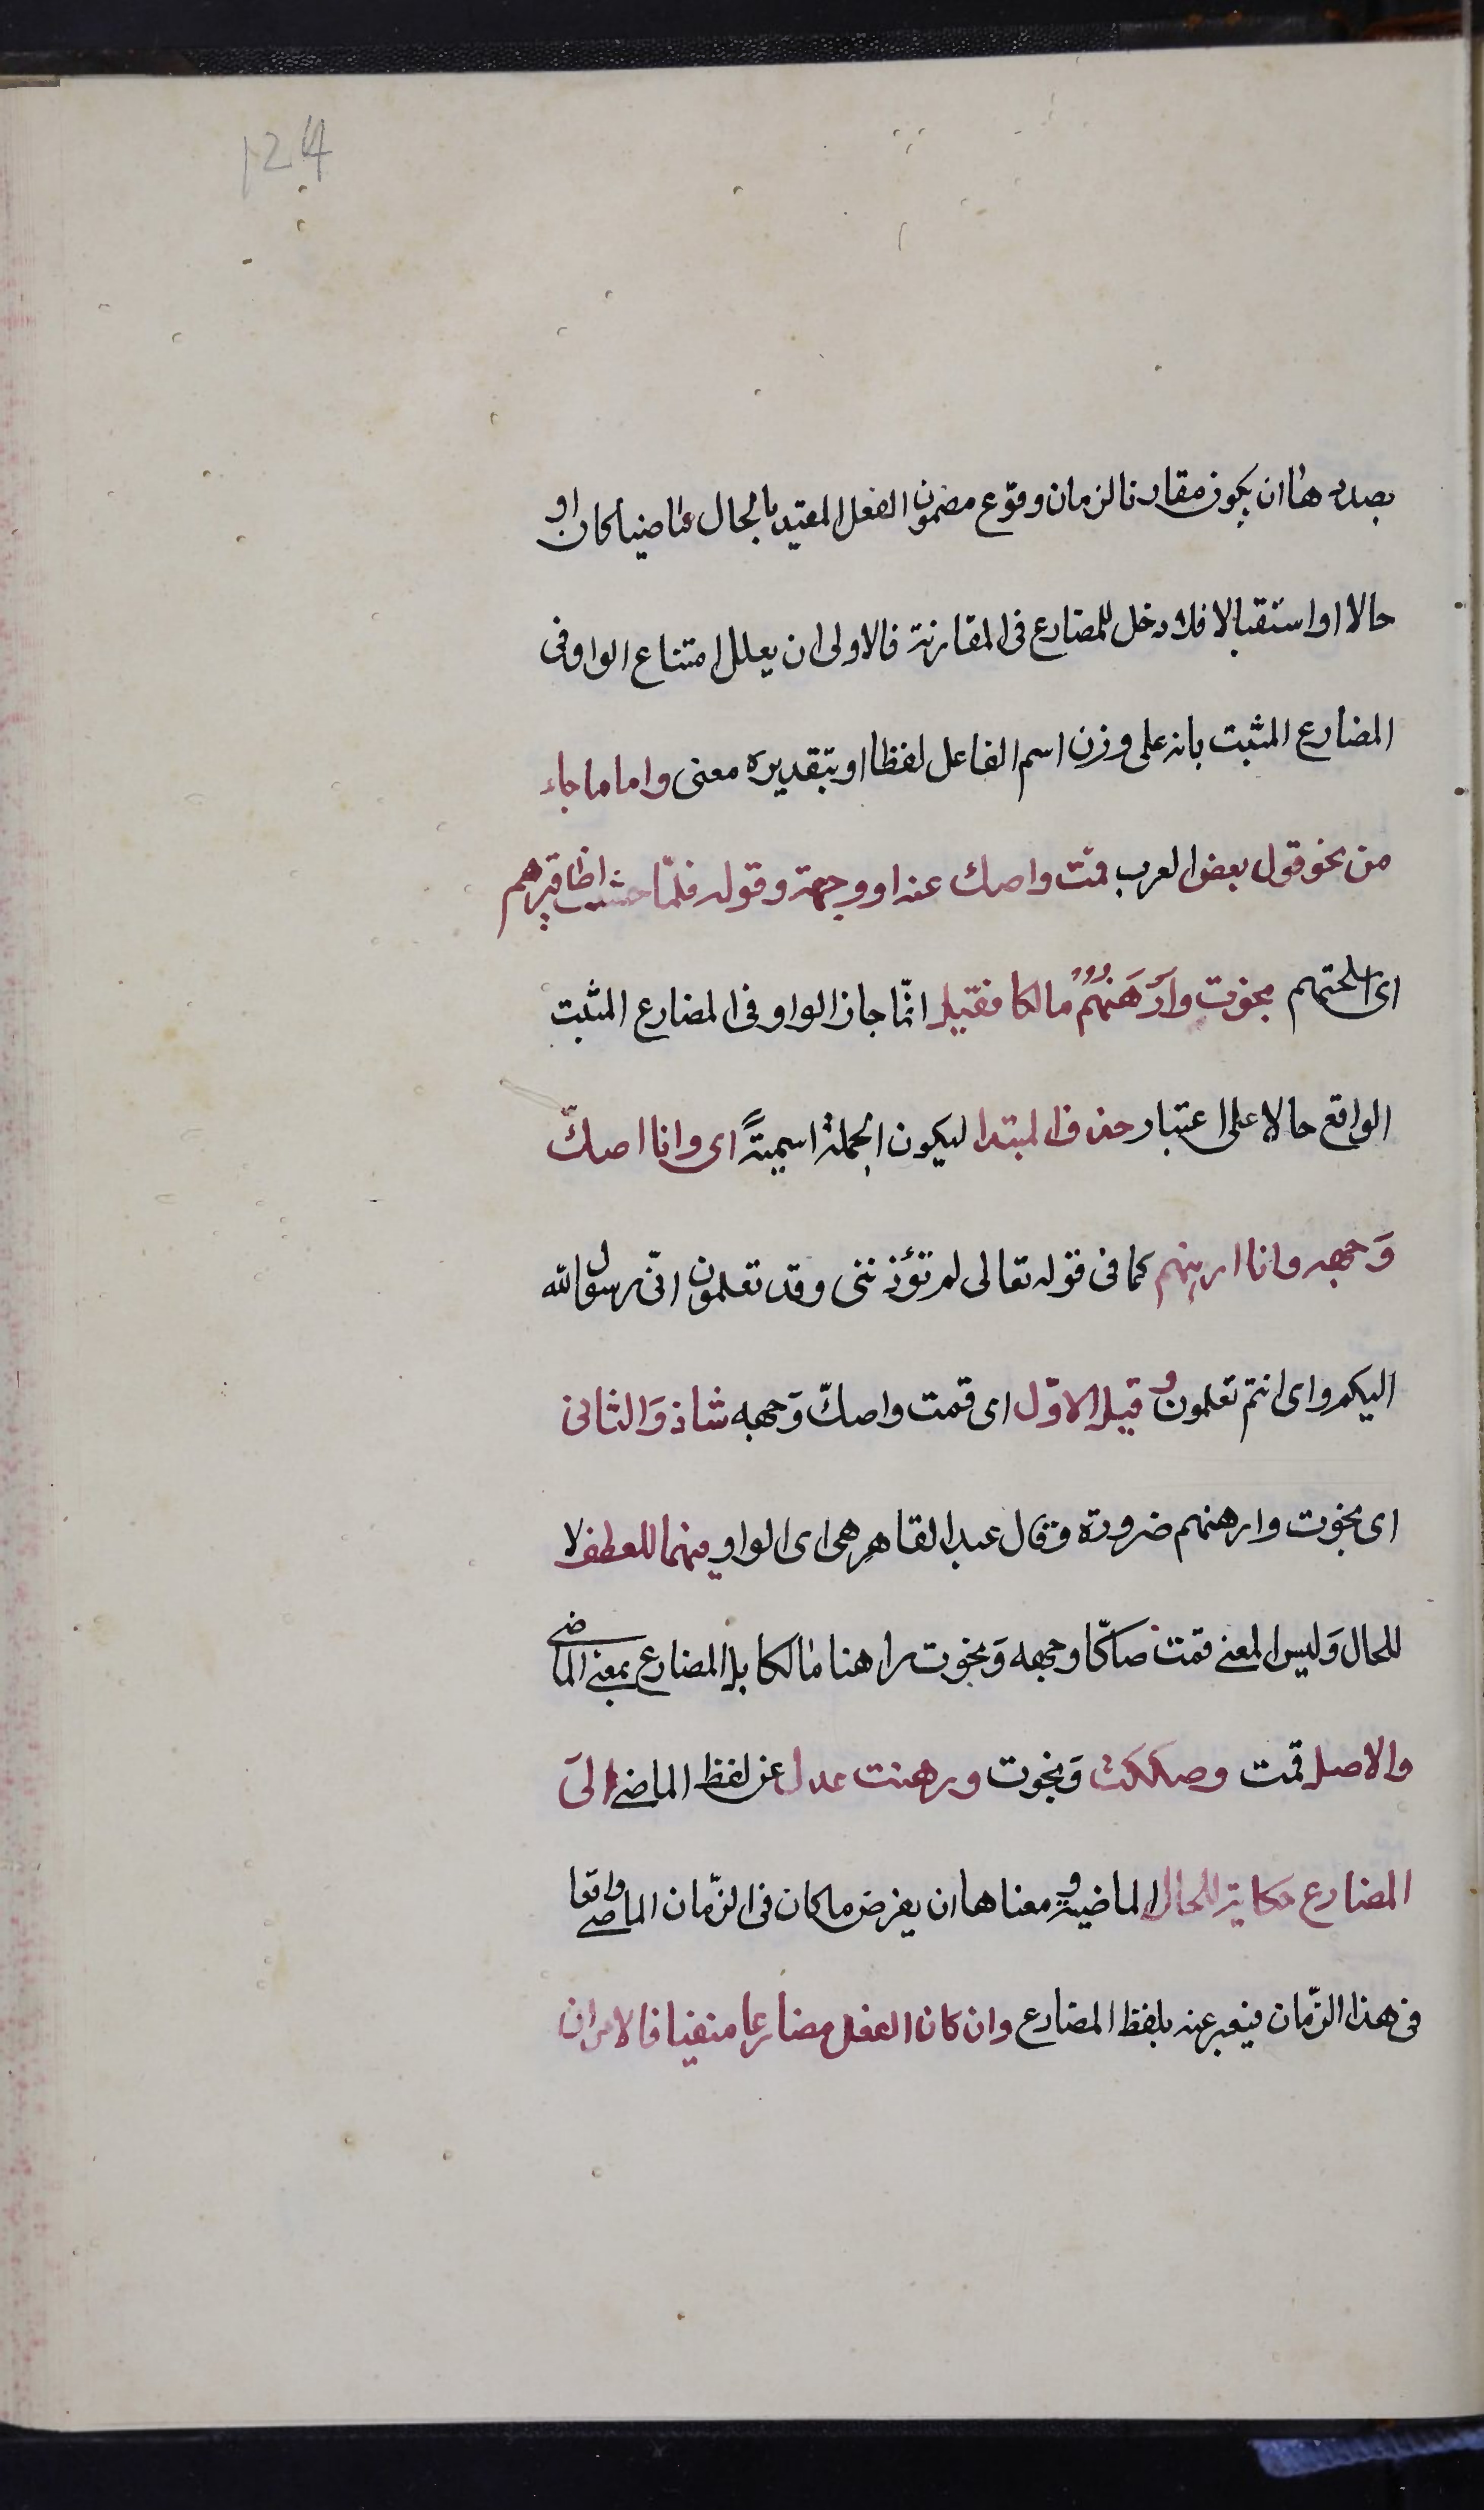 124
بصدها ان يكون مقارنا لزمان وقوع مضمون الفعل المقيد بالحال ماضيا كان او
حالا او استقبالا فلا دخل للمضارع فى المقارنة فالاولى ان يعلل امتناع الواو فى
المضارع المثبت بانه على وزن اسم الفاعل لفظا او بتقديره معنى واما ما جاء
من نحو قول بعض العرب قمت واصك عنه او وجهة وقوله فلمّا خشيت اظافيرهم
اى اسلحتهم نجوت وَاَرْهَنُهُمْ مالكا فقيل انّما جاز الواو فى المضارع المثبت
الواقع حالا على اعتبار حذف المبتدا ليكون الجملة اسميةً اى وانا اصكّ
وَجهه وانا ارهنهم كما فى قوله تعالى لم تؤذننى وقد تعلمون انّى رسول الله
اليكم و اى انتم تعلمون و قيل الاوّل اى قمت واصكّ وَجهه شاذ وَالثانى
اى نجوت وارهنهم ضرورة وقال عبد القاهر هى اى الواو فيهما للعطف لا
للحال وَليس المعنى قمت صاكّا وجهه وَنجوت راهنا مالكا بل المضارع بمعنى الماضى
والاصل قمت وصككت وَنجوت ورهنت عدل عن لفظ الماضى الىَ
المضارع حكاية للحال الماضية و معناها ان يفرض ما كان فى الزّمان الماضى واقعا
فى هذا الزّمان فيعبر عنه بلفظ المضارع وان كان الفعل مضارعا منفيا فالامران